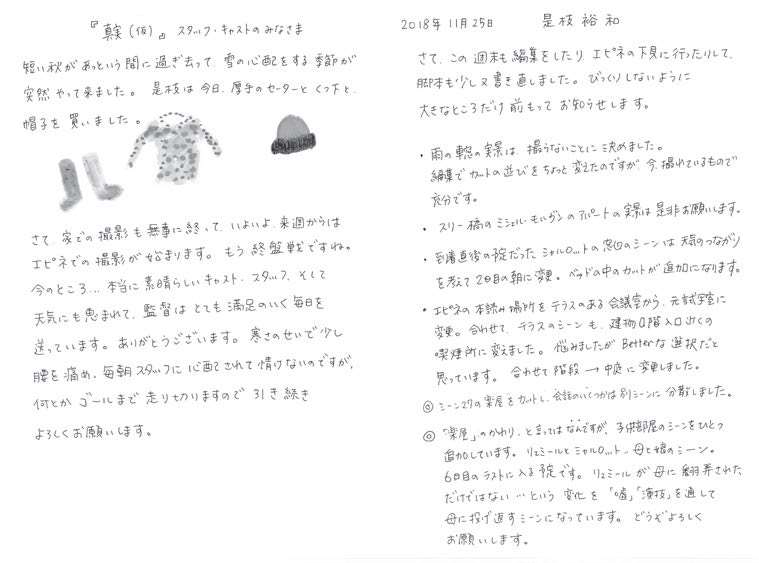 『真実(仮)』 スタッフ・キャストのみなさま
短い秋があっという間に過ぎ去って、雪の心配をする季節が
突然やって来ました。 是枝は今日、厚手のセーターとくつ下と、
帽子を買いました。
さて、家での撮影も無事に終って、いよいよ、来週からは
エピネでの撮影が始まります。もう終盤戦ですね。
今のところ…本当に素晴らしいキャスト、スタッフ、そして
天気にも恵まれて、監督はとても満足のいく毎日を
送っています。ありがとうございます。寒さのせいで少し
腰を痛め、毎朝スタッフに心配されて情けないのですが、
何とかゴールまで走り切りますので引き続き
よろしくお願いします。
2018年11月25日 是枝裕和
さて、この週末も編集をしたり、エピネの下見に行ったりして、
脚本も少し又書き直しました。びっくりしないように
大きなところだけ前もってお知らせします。
・雨の の実景は、撮らないことに決めました。
編集でカットの並びをちょっと変えたのですが、今、撮れているもので
充分です。
・スリー橋のミシェル・モルガンのアパートの実景は是非お願いします。
・到着直後の予定だったシャルロットの窓辺のシーンは天気のつながり
を考えて2日目の朝に変更。ベッドの中のカットが追加になります。
・エピネの本読み場所をテラスのある会議室から、元試写室に
変更。合わせて、テラスのシーンも、建物0階入口近くの
喫煙所に変えました。悩みましたがBetterな選択だと
思っています。 合わせて階段→中庭に変更しました。
◎シーン27の楽屋をカットし、会話のいくつかは別シーンに分散しました。
◎「楽屋」のかわり、と言ってはなんですが、子供部屋のシーンをひとつ
追加しています。リュミールとシャルロット、母と娘のシーン。
6日目のラストに入る予定です。リュミールが母に翻弄された
だけではない…という変化を「嘘」「演技」を通して
母に投げ返すシーンになっています。どうぞよろしく
お願いします。